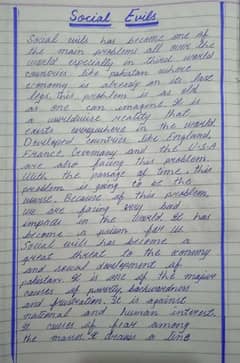 Social Evils
Social evils has become one of
the main problems all over the
world especially in third world
countries like pakistan where
economy is already on its last
legs. this problem is as old
as one can imagine. It is
a worldwise reality that
exists everywhere in the world.
Developed countries like England,
France, Germany and the U.S.A
are also facing this problem.
With the passage of time, this
problem is going to be the
worse. Because of this problem
we are facing very bad
impacts in the world. It has
become a prison for us.
Social evils has become a
great threat to the economy
and social development of
pakistan. It is one of the major
causes of poverty, backwardness
and frustration. It is against
national and human interest.
It causes of fear among
the masses. It draws a line